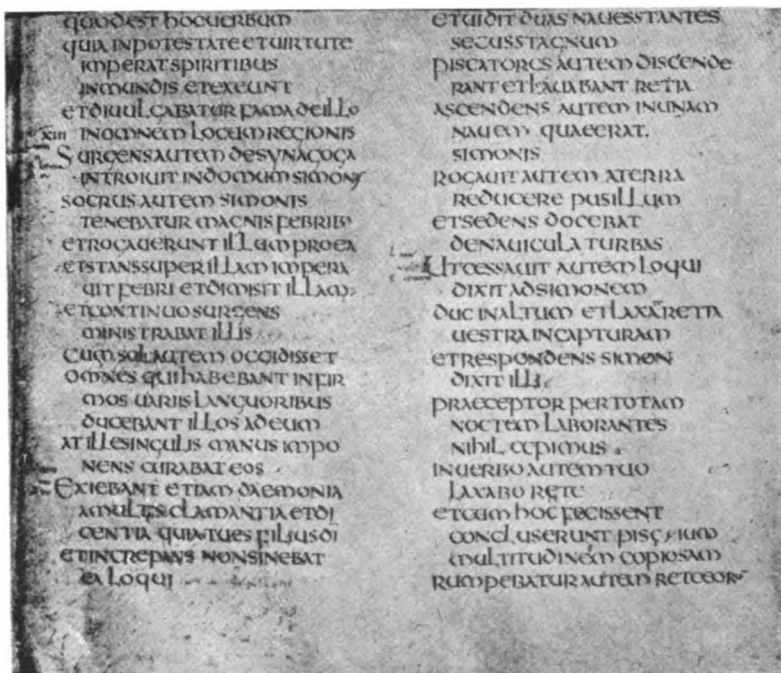 quod est hoc uerbum
quia in potestate et uirtute
imperat spiritibus
inmundis et exeunt
et diuulgabatur fama de illo
xiii in omnem locum regionis
Surgens autem de synagoga
introiuit in domum simonis
socrus autem simonis
tenebatur magnis febrib·
et rogauerunt illum pro ea
et stans super illam impera
uit febri et dimisit illam
et continuo surgens
ministrabat illis
Cum sol autem occidisset
omnes qui habebant infir
mos uariis languoribus
ducebant illos ad eum
at ille singulis manus impo
nens curabat eos
Exiebant etiam daemonia
a multis clamantia et di
centia quia tu es filius di
et increpans non sinebat
ea loqui
et uidit duas naues stantes
secus stagnum
piscatores autem discende
rant et lauabant retia
ascendens autem in unam
nauem quae erat
simonis
rogauit autem a terra
reducere pusillum
et sedens docebat
de nauicula turbas
Ut cessauit autem loqui
dixit ad simonem
duc in altum et laxate retia
uestra in capturam
et respondens simon
dixit illi
praeceptor per totam
noctem laborantes
nihil cepimus
in uerbo autem tuo
laxabo rete
et cum hoc fecissent
concluserunt piscium
multitudinem copiosam
rumpebatur autem rete eor